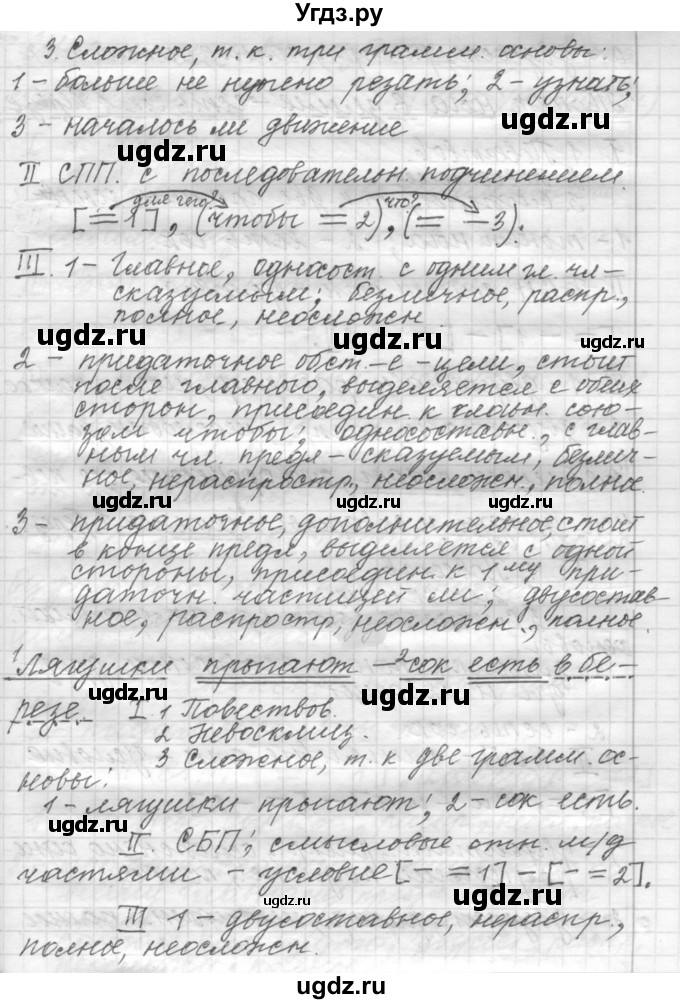 Угдз.ру
3. Сложное, т. к. три грамм. основы:
1 – больше не нужно резать; 2 – узнать;
3 – началось ли движение
ugdz.ru ugdz.ru
II СПП. с последовательн. подчинением.
для чего? что?
[= 1], (чтобы = 2), (= – 3).
ugdz.ru
III. 1 – Главное, односост. с одним гл. чл –
сказуемым; безличное, распр.,
полное, неосложн.
ugdz.ru ugdz.ru
2 – придаточное обст-е – цели, стоит
после главного, выделяется с обеих
сторон, присоедин. к главн. сою-
зом чтобы; односоставн., с глав-
ugdz.ru
ным чл. предл – сказуемым, безлич-
ное, нераспростр., неосложн., полное.
ugdz.ru ugdz.ru ugdz.ru
3 – придаточное, дополнительное, стоит
в конце предл., выделяется с одной
стороны, присоедин. к 1му при-
даточн. частицей ли; двусостав-
ugdz.ru ugdz.ru
ное, распростр, неосложн., полное.
1Лягушки прыгают – 2сок есть в бе-
ugdz.ru
резе. I 1 Повествов.
2 Невосклиц.
ugdz.ru
3 Сложное, т. к две грамм. ос-
новы:
1 – лягушки прыгают; 2 – сок есть.
ugdz.ru
II СБП; смысловые отн. м/д
частями – условие [– = 1] – [– = 2].
ugdz.ru ugdz.ru
III 1 – двусоставное, нераспр.,
полное, неосложн.
ugdz.ru ugdz.ru